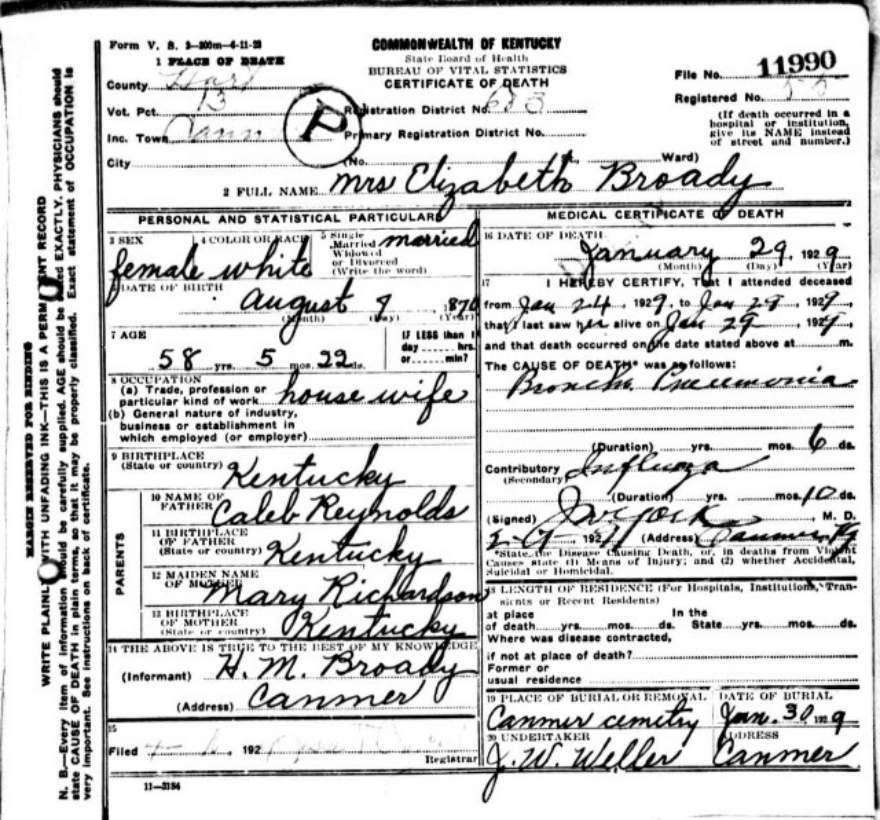 Form V. S. 3-300m-4-11-28
COMMONWEALTH OF KENTUCKY
State Board of Health
BUREAU OF VITAL STATISTICS
CERTIFICATE OF DEATH
1 PLACE OF DEATH
County Hart
Vot. Pct. 13
Inc. Town
City
P
Registration District No.
Primary Registration District No.
(No. Ward)
File No. 11990
Registered No.
(If death occurred in a
hospital or institution,
give its NAME instead
of street and number.)
2 FULL NAME Mrs Elizabeth Broady
PERSONAL AND STATISTICAL PARTICULARS
3 SEX
female
4 COLOR OR RACE
white
5 Single
Married
Widowed
or Divorced
(Write the word)
married
6 DATE OF BIRTH
August
(Month) (Day) (Year)
7 AGE
58 yrs. 5 mos. 22 ds.
IF LESS than 1
day hrs.
or min?
8 OCCUPATION
(a) Trade, profession or
particular kind of work house wife
(b) General nature of industry,
business or establishment in
which employed (or employer)
9 BIRTHPLACE
(State or country) Kentucky
PARENTS
10 NAME OF
FATHER Caleb Reynolds
11 BIRTHPLACE
OF FATHER
(State or country) Kentucky
12 MAIDEN NAME
OF MOTHER Mary Richardson
13 BIRTHPLACE
OF MOTHER
(State or country) Kentucky
14 THE ABOVE IS TRUE TO THE BEST OF MY KNOWLEDGE
(Informant) H. M. Broady
(Address) Canmer
15
Filed 192
Registrar
11-3184
MEDICAL CERTIFICATE OF DEATH
16 DATE OF DEATH
January 29, 1929
(Month) (Day) (Year)
17 I HEREBY CERTIFY, That I attended deceased
from Jan 24, 1929, to Jan 29, 1929,
that I last saw her alive on Jan 29, 1929
and that death occurred on the date stated above at m.
The CAUSE OF DEATH* was as follows:
Pneumonia
(Duration) yrs. mos. 6 ds.
Contributory
(Secondary)
(Duration) yrs. mos. 10 ds.
(Signed) M. D.
192 (Address) Canmer Ky
*State the Disease Causing Death, or, in deaths from Violent
Causes state (1) Means of Injury; and (2) whether Accidental,
Suicidal or Homicidal.
18 LENGTH OF RESIDENCE (For Hospitals, Institutions, Tran-
sients or Recent Residents)
at place In the
of death yrs. mos. ds. State yrs. mos. ds.
Where was disease contracted,
if not at place of death?
Former or
usual residence
19 PLACE OF BURIAL OR REMOVAL
Canmer cemetry
DATE OF BURIAL
Jan. 30, 1929
20 UNDERTAKER
J. W. Weller
ADDRESS
Canmer
MARGIN RESERVED FOR BINDING
WRITE PLAINLY WITH UNFADING INK—THIS IS A PERMANENT RECORD
N. B.—Every item of information should be carefully supplied. AGE should be stated EXACTLY. PHYSICIANS should
state CAUSE OF DEATH in plain terms, so that it may be properly classified. Exact statement of OCCUPATION is
very important. See instructions on back of certificate.